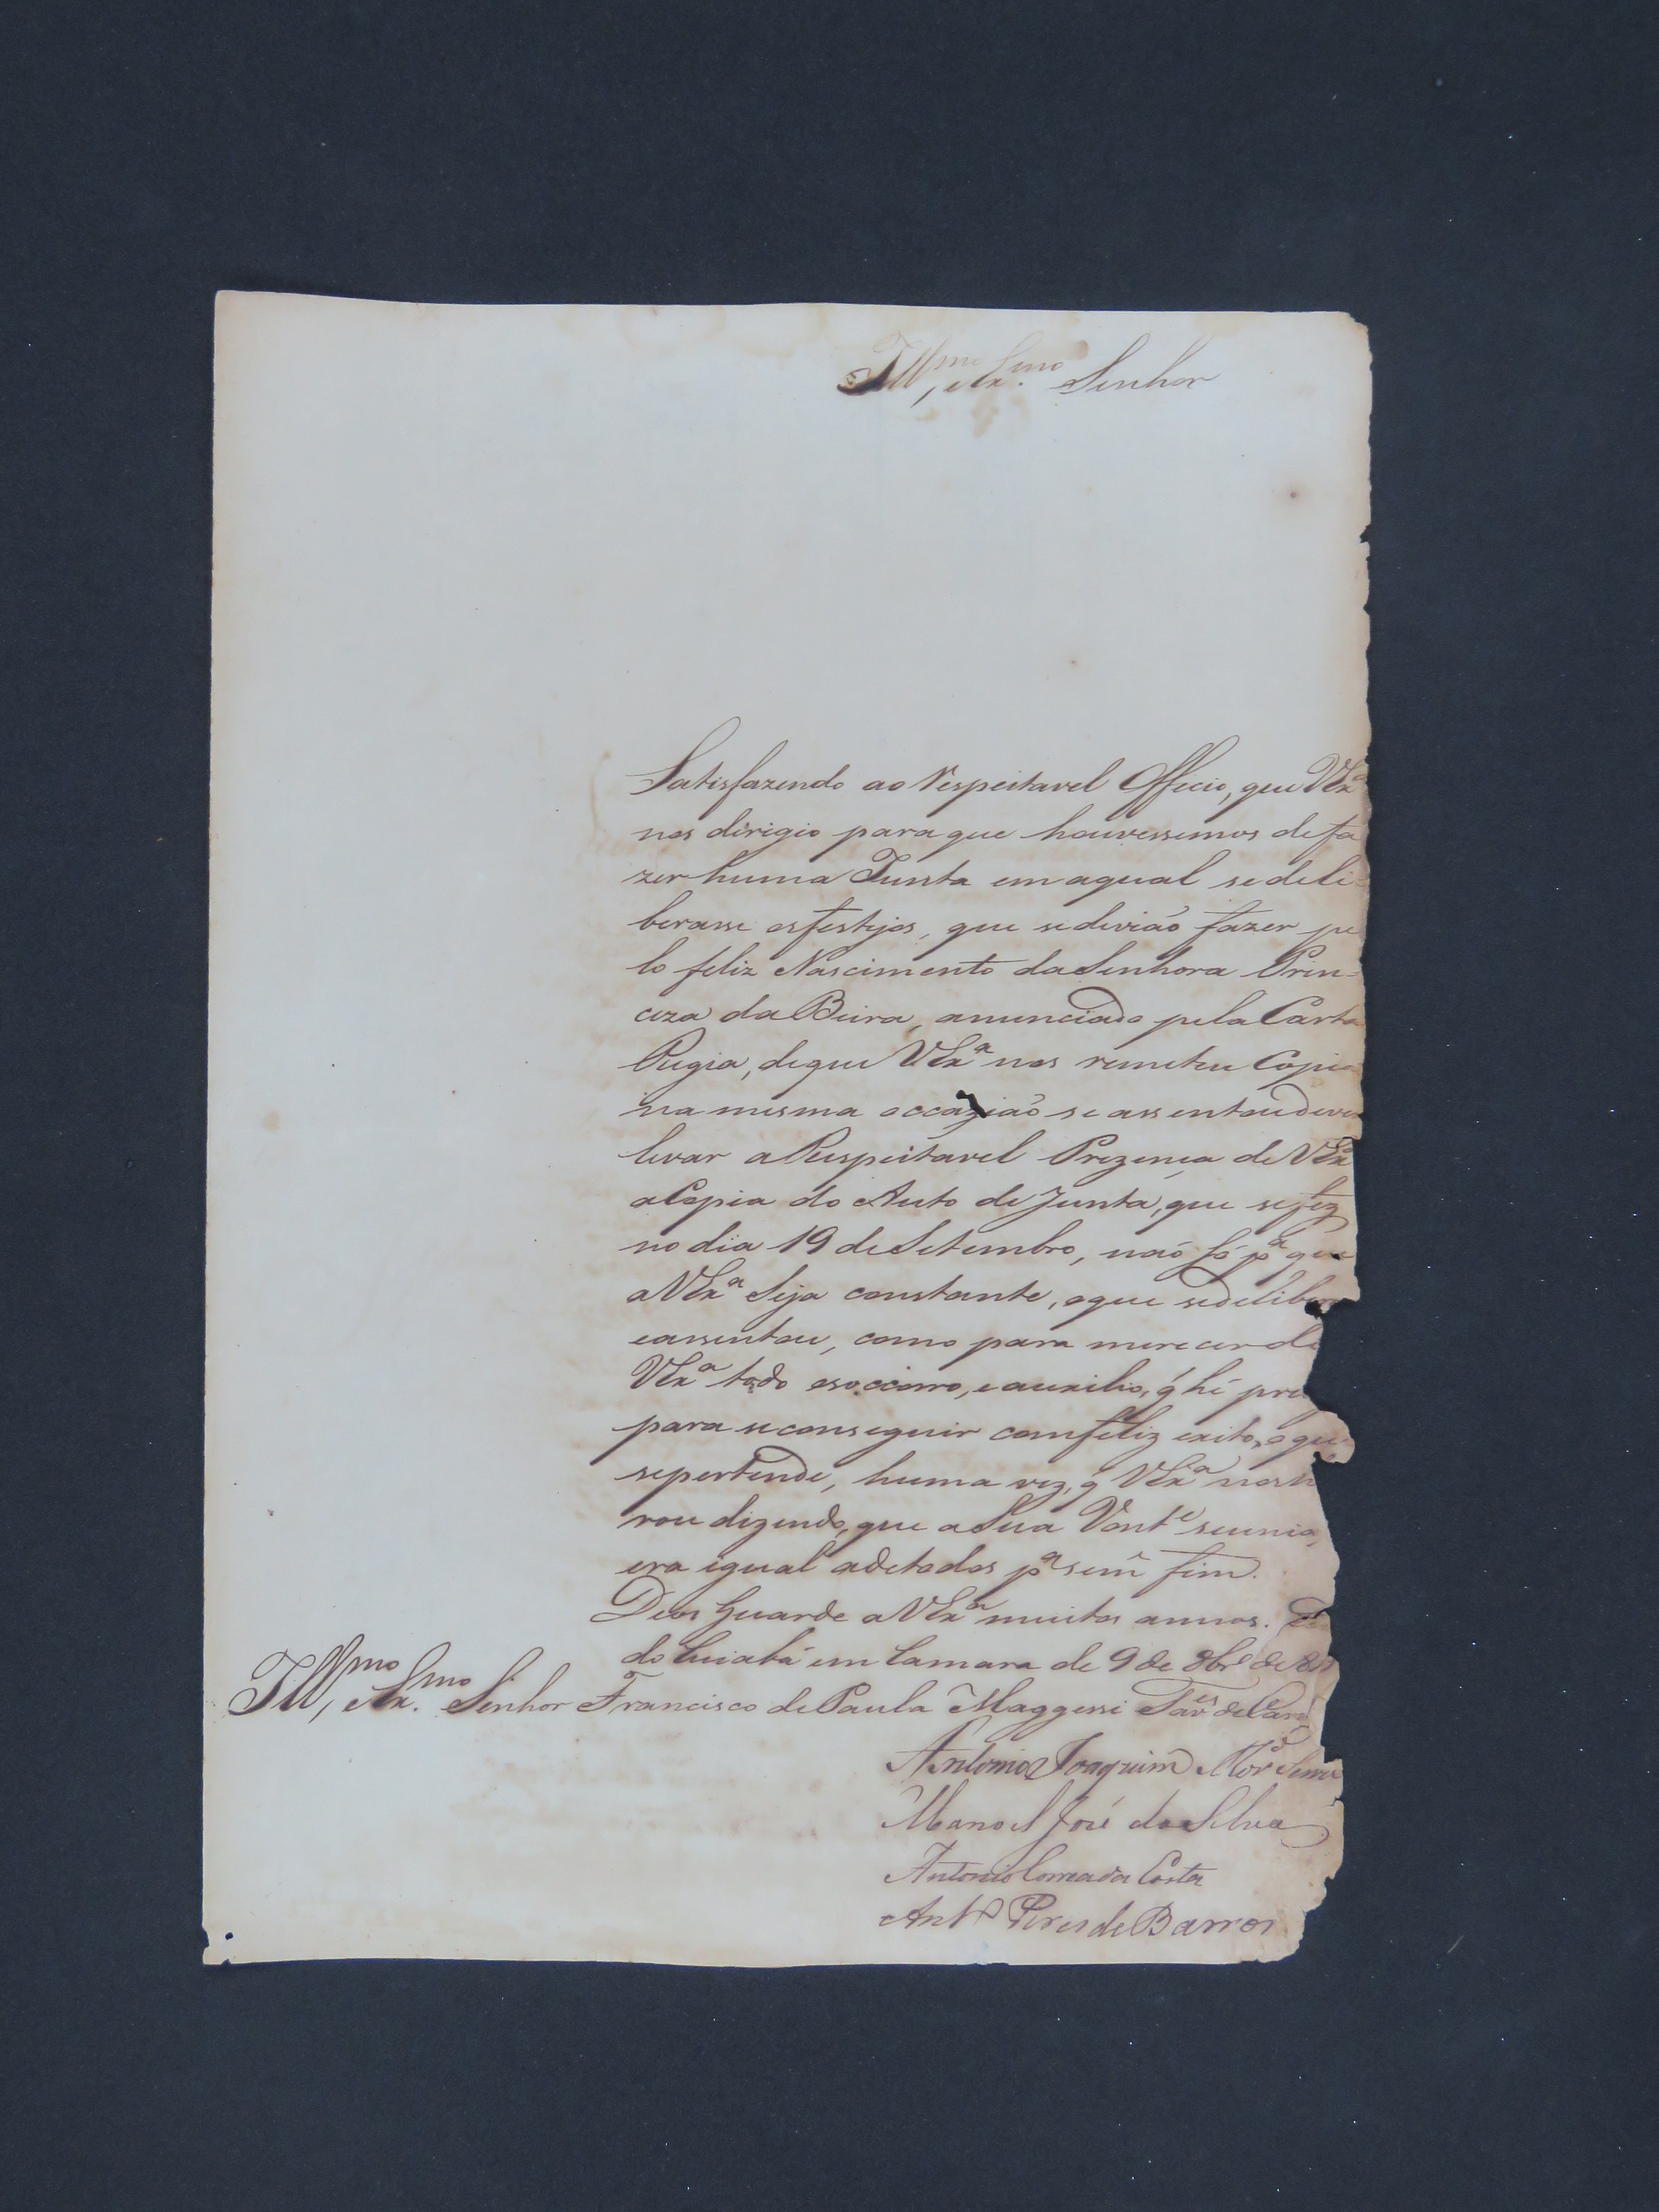 Ill.mo, e Ex.mo Senhor
Satisfazendo ao Respeitavel Officio, que VExª
nos dirigio para que houvessemos de fa
zer huma Junta em aqual se deli=
berasse os festejos, que se devião fazer pe
lo feliz Nascimento da Senhora Prin=
ceza da Beira, anunciado pela Carta
Regia, de que VExª nos remeteu Copia
na mesma occazião se assentou deve
levar a Respeitavel Prezença de VExª
a Copia do Auto de Junta, que se fez
no dia 19 de Setembro, não só pª que
a VExª Seja constante, o que se delibe
e assentou, como para merecer de
VExª todo o soccorro, e auxilio, q̃ hé pre
para se conseguir com feliz exito, o que
se pertende, huma vez, q̃ VExª nos h
rou dizendo, que a Sua Vont.e se unia,
era igual a de todos pª sem̃ fim.
Deos Guarde a VExª muitos annos.
do Cuiabá em Camara de 9 de 8br.e de
Ill.mo, e Ex.mo Senhor Francisco de Paula Maggessi Tav.es de Carv
Antonio Joaquim Mor.a
Manoel José da Silva
Antonio Correa da Costa
Ant.o Pires de Barros